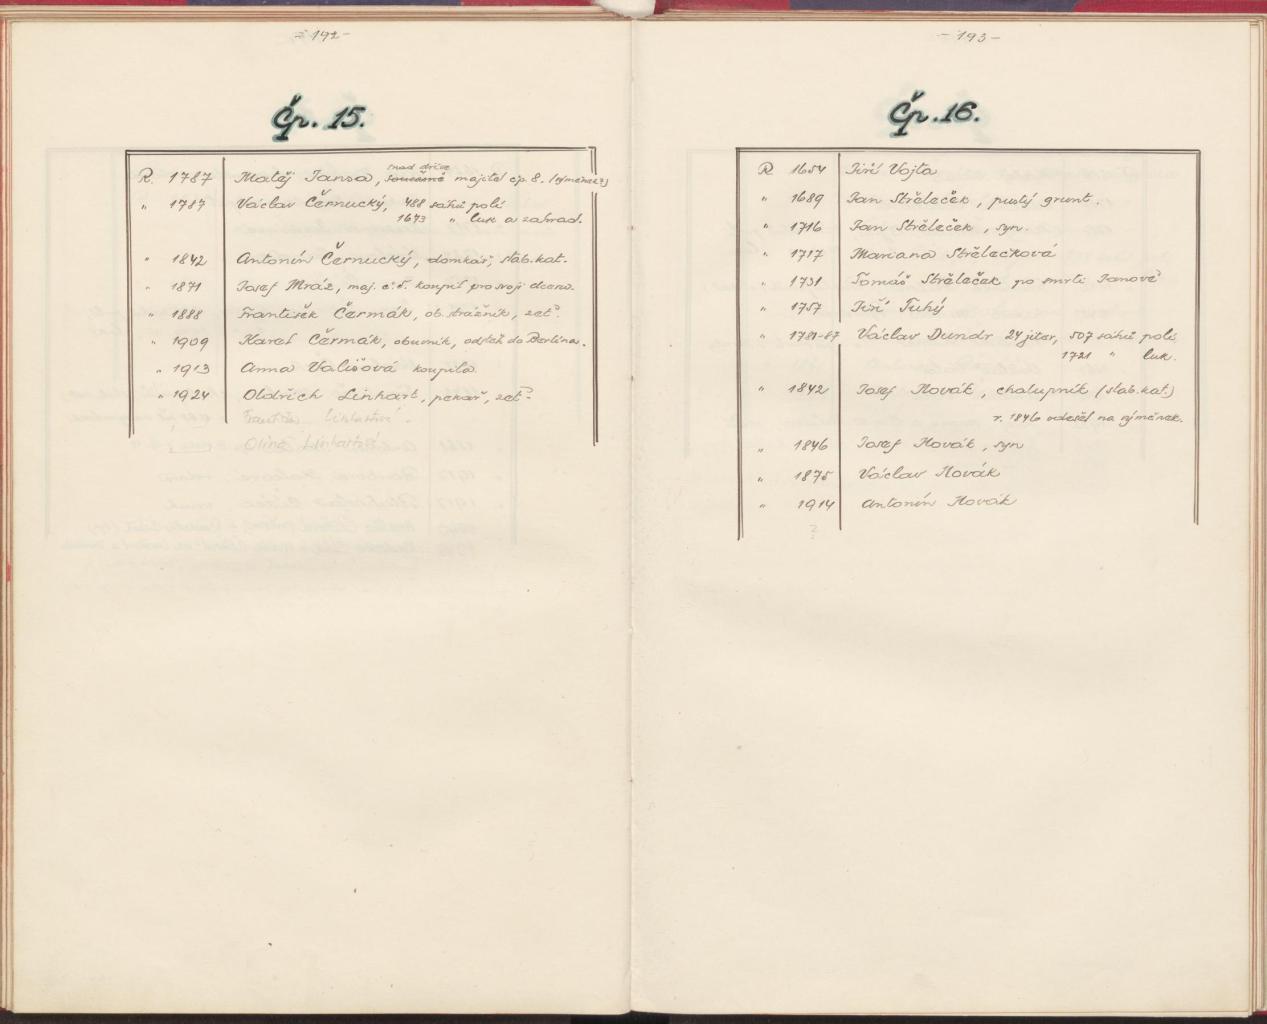 - 192 -
Čp. 15.
R. 1787 Matěj Jansa, současně majitel čp. 8. (výměnek?)
snad dříve
„ 1787 Václav Černucký, 488 sáhů polí
1673 „ luk a zahrad.
„ 1842 Antonín Černucký, domkář, stab. kat.
„ 1871 Josef Mráz, maj. č. 5. koupil pro svoji dceru.
„ 1888 František Čermák, ob. strážník, zeť.
„ 1909 Karel Čermák, obuvník, odešel do Berlína.
„ 1913 Anna Vališová koupila.
„ 1924 Oldřich Linhart, pekař, zeť.
František Linhartovi.
Linhartová
- 193 -
Čp. 16.
R. 1654 Jiří Vojta
„ 1689 Jan Střeleček, pustý grunt.
„ 1716 Jan Střeleček, syn.
„ 1717 Mariana Střelečková
„ 1731 Tomáš Střeleček po smrti Janově
„ 1757 Jiří Tuhý
„ 1781-87 Václav Dundr 24 jiter, 507 sáhů polí,
1721 „ luk.
„ 1842 Josef Novák, chalupník (stab. kat.)
r. 1846 odešel na výměnek.
„ 1846 Josef Novák, syn
„ 1875 Václav Novák
„ 1914 Antonín Novák
?